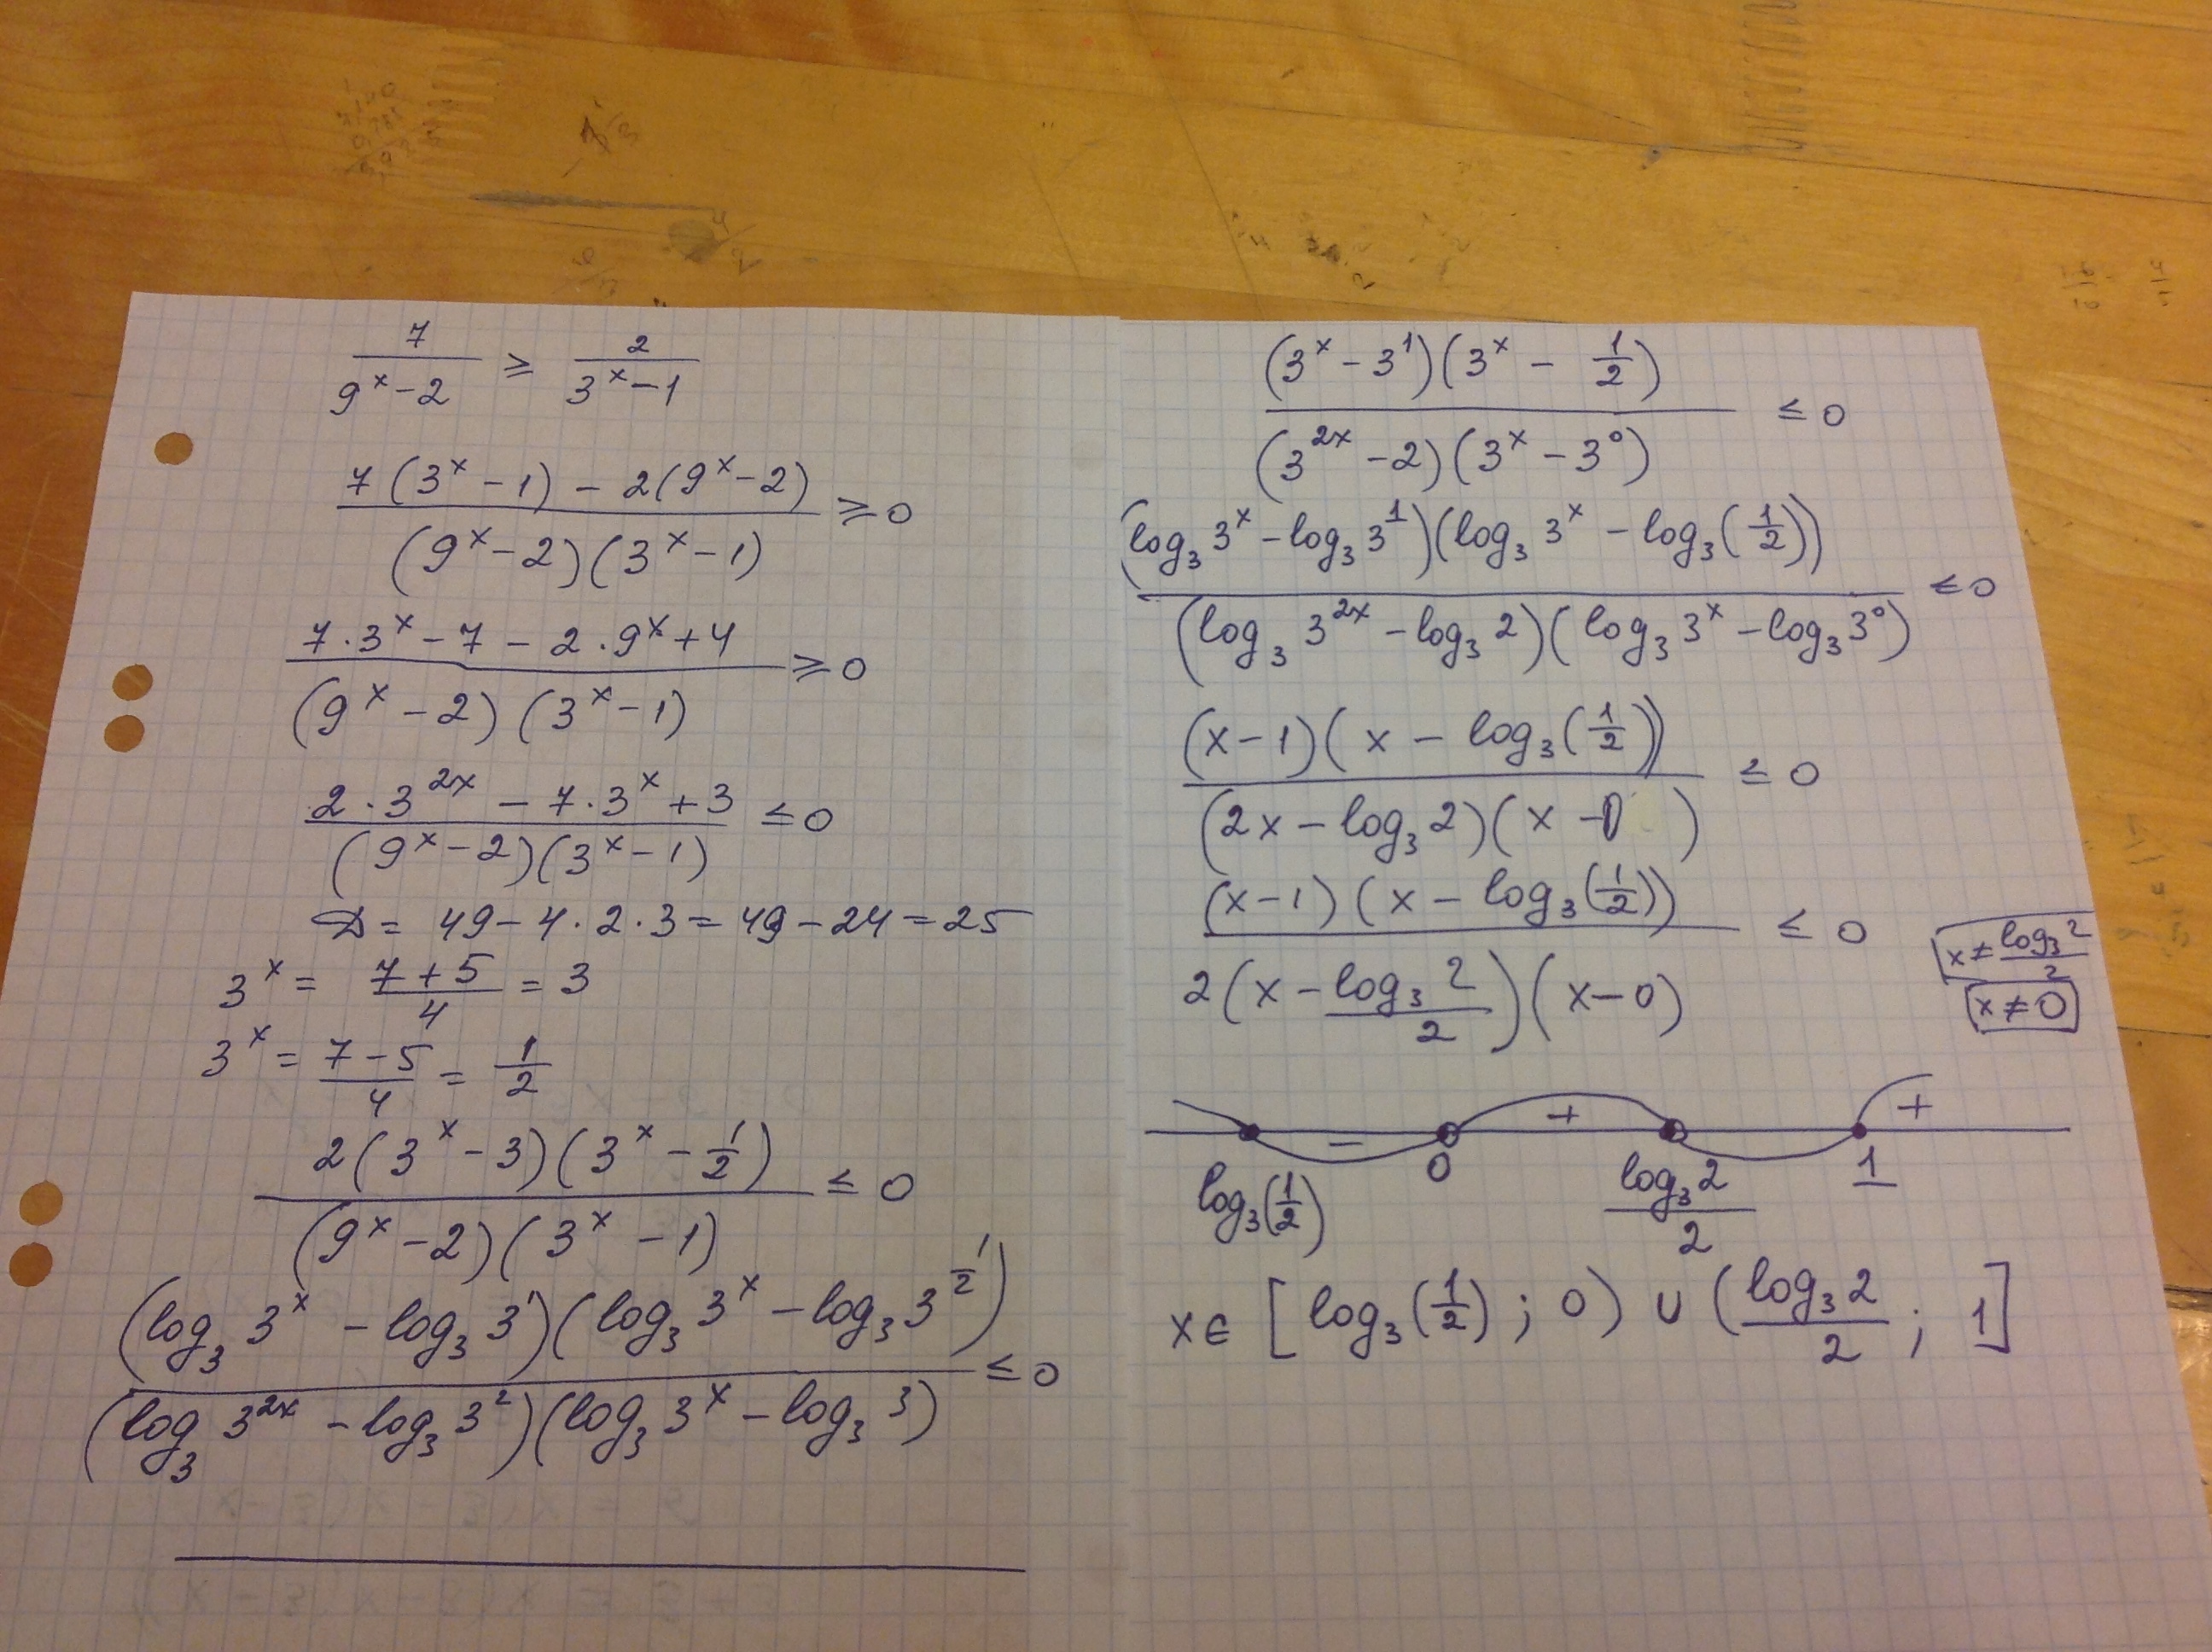 7/(9^x − 2) ≥ 2/(3^x − 1)
(7(3^x − 1) − 2(9^x − 2))/((9^x − 2)(3^x − 1)) ≥ 0
(7·3^x − 7 − 2·9^x + 4)/((9^x − 2)(3^x − 1)) ≥ 0
(2·3^(2x) − 7·3^x + 3)/((9^x − 2)(3^x − 1)) ≤ 0
D = 49 − 4·2·3 = 49 − 24 = 25
3^x = (7 + 5)/4 = 3
3^x = (7 − 5)/4 = 1/2
(2(3^x − 3)(3^x − 1/2))/((9^x − 2)(3^x − 1)) ≤ 0
((log_3 3^x − log_3 3^1)(log_3 3^x − log_3 3^(1/2)))/((log_3 3^(2x) − log_3 3^2)(log_3 3^x − log_3 3)) ≤ 0
((3^x − 3^1)(3^x − 1/2))/((3^(2x) − 2)(3^x − 3^0)) ≤ 0
((log_3 3^x − log_3 3^1)(log_3 3^x − log_3(1/2)))/((log_3 3^(2x) − log_3 2)(log_3 3^x − log_3 3^0)) ≤ 0
((x − 1)(x − log_3(1/2)))/((2x − log_3 2)(x − 0)) ≤ 0
((x − 1)(x − log_3(1/2)))/(2(x − (log_3 2)/2)(x − 0)) ≤ 0
x ≠ (log_3 2)/2
x ≠ 0
− + +
log_3(1/2) 0 (log_3 2)/2 1
x ∈ [log_3(1/2); 0) ∪ ((log_3 2)/2; 1]